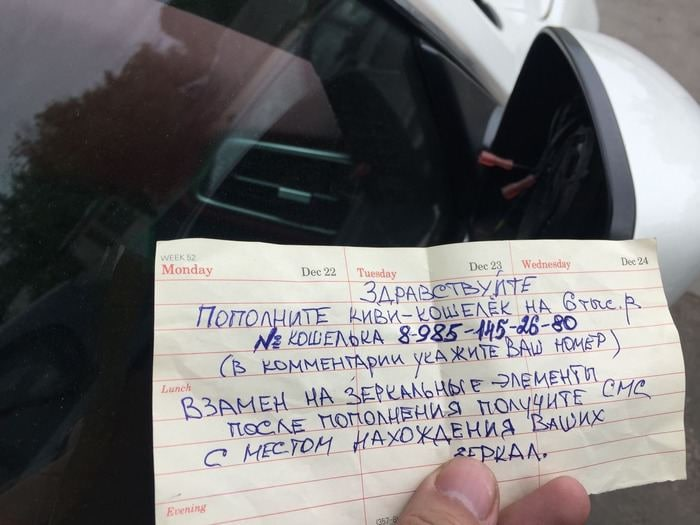 WEEK 52
Monday Dec 22 Tuesday Dec 23 Wednesday Dec 24
ЗДРАВСТВУЙТЕ
ПОПОЛНИТЕ КИВИ-КОШЕЛЁК НА 6 тыс. р
№ КОШЕЛЬКА 8-985-145-26-80
(В КОММЕНТАРИИ УКАЖИТЕ ВАШ НОМЕР)
Lunch
ВЗАМЕН НА ЗЕРКАЛЬНЫЕ ЭЛЕМЕНТЫ
ПОСЛЕ ПОПОЛНЕНИЯ ПОЛУЧИТЕ СМС
С МЕСТОМ НАХОЖДЕНИЯ ВАШИХ
ЗЕРКАЛ.
Evening